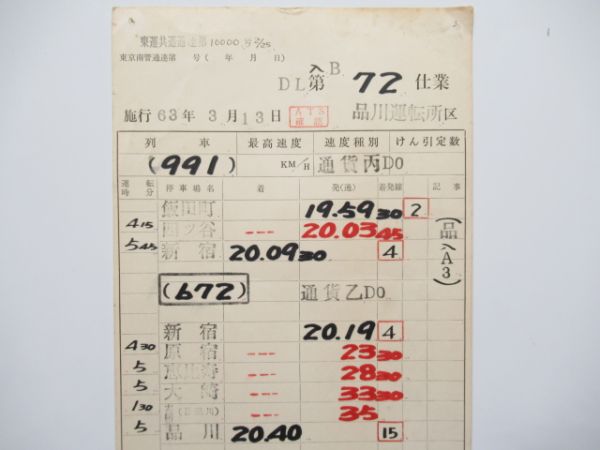 東運共通達第10000号の25
東京南管通達第 号( 年 月 日)
DL入B第72仕業
施行63年3月13日 ATS確認 品川運転所区
列車 最高速度 速度種別 けん引定数
(991) KM/H 通貨丙D0
運転時分 停車場名 着 発(通) 着発線 記事
飯田町 19.59 30 2
415 四ッ谷 --- 20.03 45
545 新宿 20.09 30 4
(品入A3)
(672) 通貨乙D0
新宿 20.19 4
430 原宿 --- 23 30
5 恵比寿 --- 28 30
5 大崎 --- 33 30
130 --- 35
5 品川 20.40 15